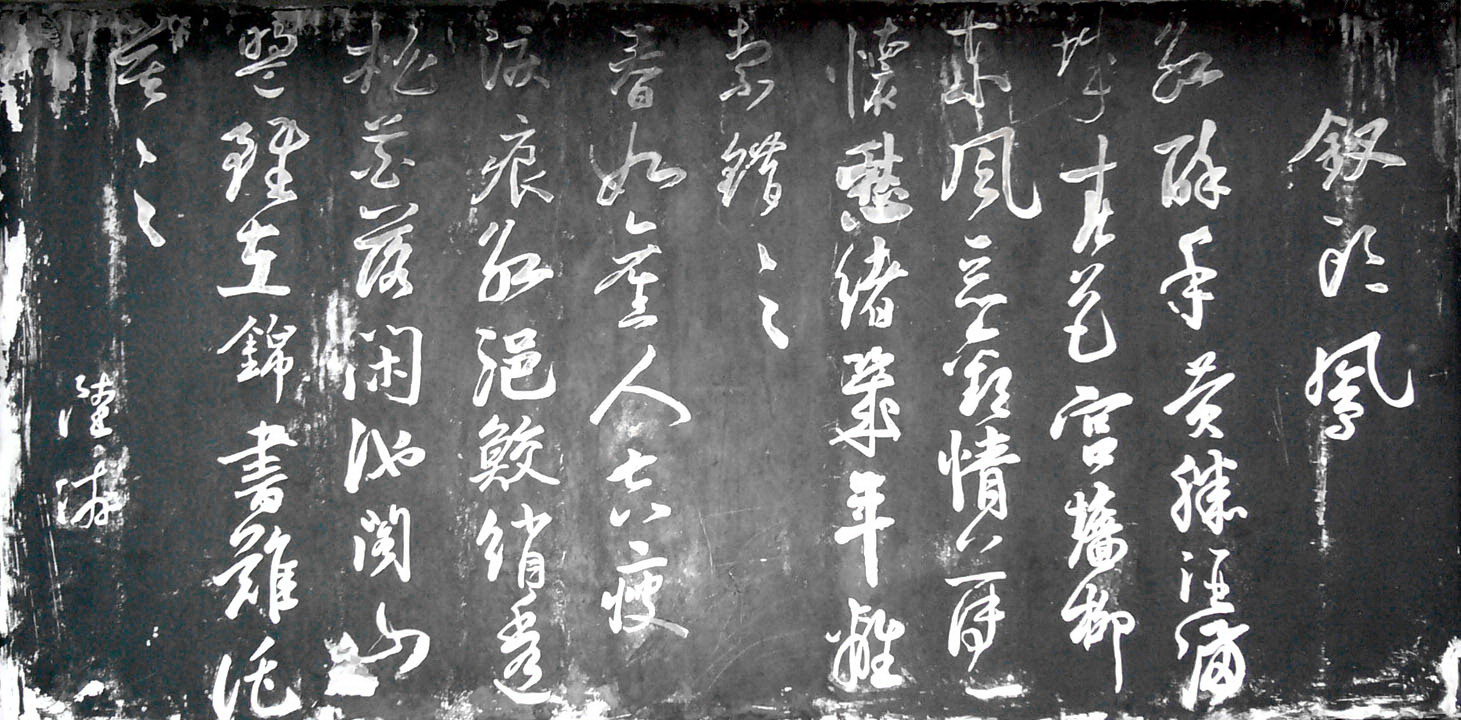 釵頭鳳
紅酥手黃縢酒滿
城春色宮墻柳
東風惡歡情薄一
懷愁緒幾年離
索錯々々
春如舊人空瘦
淚痕紅浥鮫綃透
桃花落閑池閣山
盟雖在錦書難託
莫々々
陸游